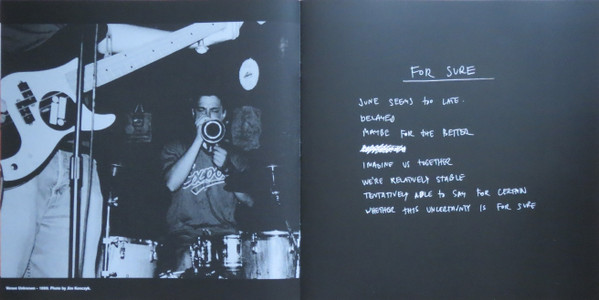 Venue Unknown – 1999. Photo by Jim Konczyk.
FOR SURE
JUNE SEEMS TOO LATE.
DELAYED
MAYBE FOR THE BETTER
IMAGINE US TOGETHER
WE'RE RELATIVELY STABLE
TENTATIVELY ABLE TO SAY FOR CERTAIN
WHETHER THIS UNCERTAINTY IS FOR SURE